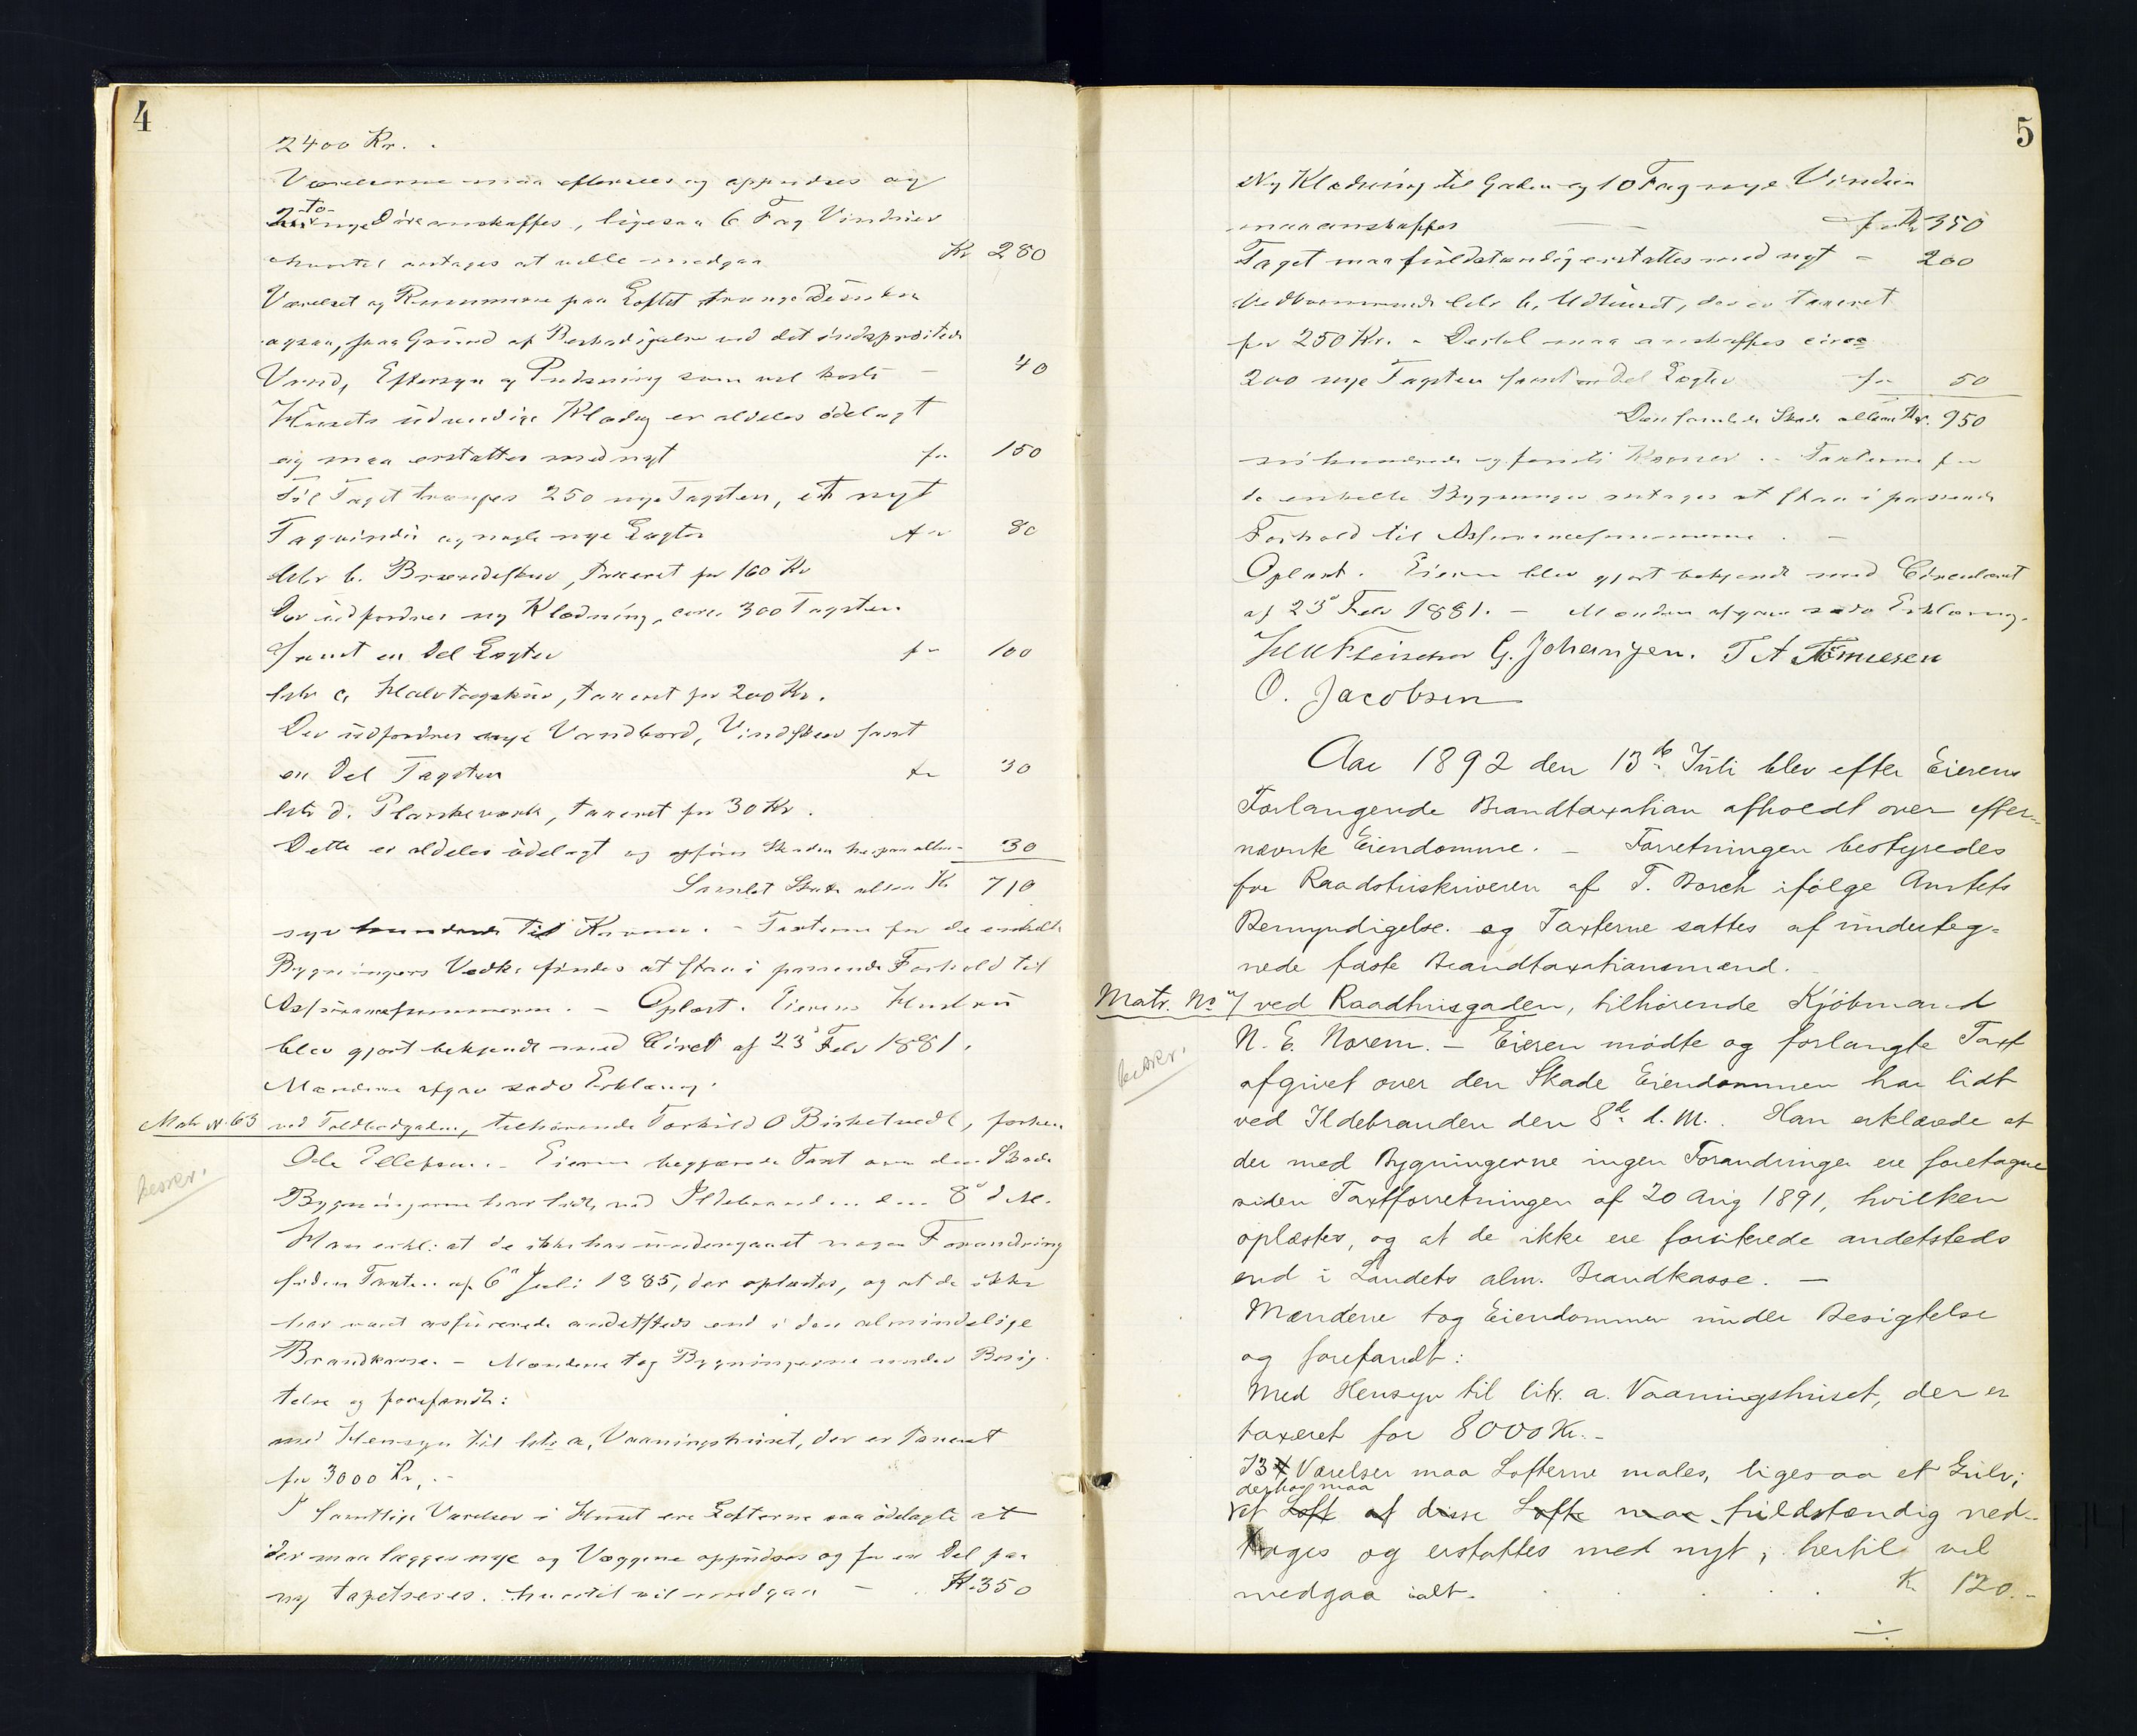 4
2400 Kr.
Værelserne maa eftersees og oppudses og
to nye Døre anskaffes, ligesaa 6 Fag Vinduer
hvortil antages at ville medgaa Kr 280
Værelset og Rummene paa Loftet trænge Desuden
ogsaa, paa Grund af Beskadigelse ved det indsprøitede
Vand, Eftersyn og Pudsning som vil koste - 40
Husets udvendige Klædng er aldeles ødelagt
og maa erstattes med nyt for 150
Til Taget trænges 250 nye Tagsten, et nyt
Tagvindu og nogle nye Lægter for 80
litr b. Brændeskur, taxeret for 160 Kr
Der udfordres ny Klædning, circa 300 Tagsten
samt en Del Lægter for 100
litr c, Halvtagskur, taxeret for 200 Kr.
Der udfordres nye Vandbord, Vindskeer samt
en Del Tagsten for 30
litr d. Plankeværk, taxeret for 30 Kr.
Dette er aldeles ødelagt og opføres Skaden herpaa altsaa 30
Samlet Skade altsaa Kr 710
syv hundrede ti Kroner. - Taxterne for de enkelte
Bygningers Vedk. findes at staa i passende Forhold til
Assurancesummerne. - Oplæst. Eierens Hustru
blev gjort bekjendt med Circl af 23de Febr 1881.
Mændene afgav sædv Erklæring.
Matr No 63 ved Toldbodgaden, tilhørende Torkild O Birketvedt, forhen
Ole Ellefsen. - Eieren begjærede Taxt over den Skade
Bygningerne har lidt, ved Ildebranden den 8de d M.
Han erkl: at de ikke har undergaaet nogen Forandring
siden Taxten af 6te Juli 1885, der oplæstes, og at de ikke
har været assurerede andetsteds end i den almindelige
Brandkasse. - Mændene tog Bygningerne under Besig-
telse og forefandt:
med Hensyn til litr a, Vaaningshuset, der er taxeret
for 3000 Kr. -
I samtlige Værelser i Huset ere Lofterne saa ødelagte at
der maa lægges nye og Væggene oppudses og for en Del paa
ny tapetseres. hvortil vil medgaa - Kr 350
5
Ny Klædning til Gaden og 10 Fag nye Vinduer
maa anskaffes for Kr 350
Taget maa fuldstændig erstattes med nyt - 200
Vedkommende litr b, Udhuset, der er taxeret
for 250 Kr. - Dertil maa anskaffes circa
200 nye Tagsten samt en Del Lægter for 50
Den samlede Skade altsaa Kr. 950
ni hundrede og femti Kroner. - Taxterne for
de enkelte Bygninger antages at staa i passende
Forhold til Assurancesummerne. -
Oplæst. Eieren blev gjort bekjendt med Circulæret
af 23de Febr 1881. - Mændene afgave sædv Erklæring.
G. Johansen. T A Tømmesen
O. Jacobsen
Aar 1892 den 13de Juli blev efter Eierens
Forlangende Brandtaxation afholdt over efter-
nævnte Eiendomme. - Forretningen bestyredes
for Raadstuskriveren af T. Borch ifølge Amtets
Bemyndigelse. og Taxterne sattes af underteg-
nede faste Brandtaxationsmænd.
Matr. No 7 ved Raadhusgaden, tilhørende Kjøbmand
N. E. Norem. - Eieren mødte og forlangte Taxt
afgivet over den Skade Eiendommen har lidt
ved Ildebranden den 8de d. M. Han erklærede at
der med Bygningerne ingen Forandringer ere foretagne
siden Taxtforretningen af 20 Aug 1891, hvilken
oplæstes, og at de ikke ere forsikrede andetsteds
end i Landets alm. Brandkasse. -
Mændene tog Eiendommen under Besigtelse
og forefandt:
Med Hensyn til litr. a. Vaaningshuset, der er
taxeret for 8000 Kr. -
I 3 Værelser maa Lofterne males, ligesaa et Gulv;
derhos maa
et Loft af disse Lofte maa fuldstændig ned-
tages og erstattes med nyt; hertil vil
medgaa ialt. Kr 120.-